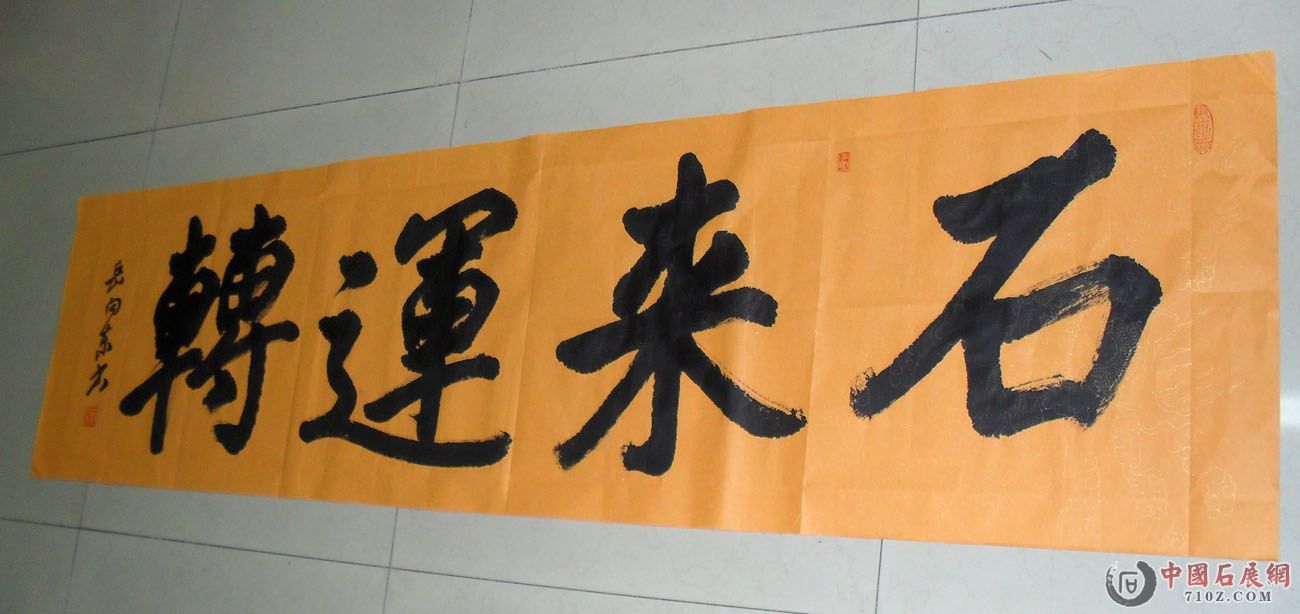 石来運轉
岳向东书
中國石展網
71OZ.COM